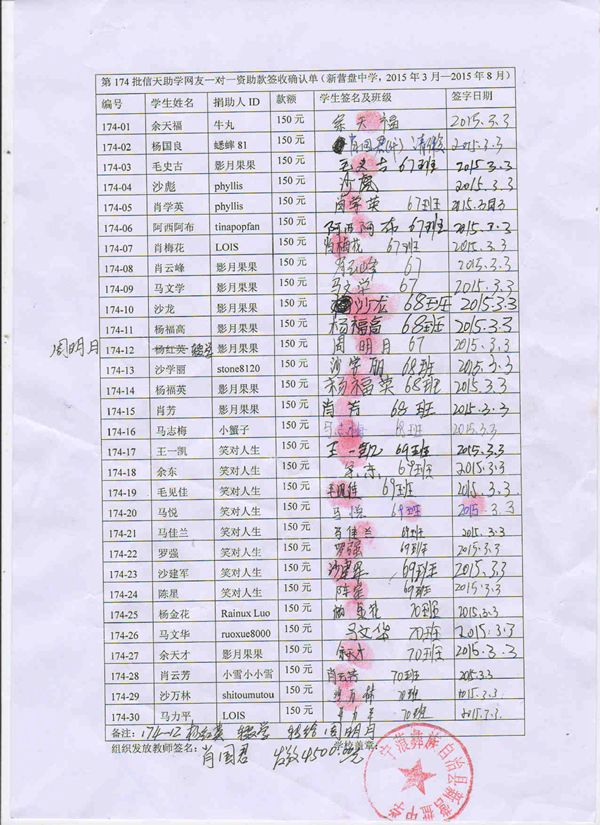 第 174 批信天助学网友一对一资助款签收确认单（新营盘中学，2015 年 3 月—2015 年 8 月）
编号 学生姓名 捐助人 ID 款额 学生签名及班级 签字日期
174-01 余天福 牛丸 150 元 余天福 2015.3.3
174-02 杨国良 蟋蟀 81 150 元 肖国君(代) 2015.3.3
174-03 毛史古 影月果果 150 元 毛史古 67班 2015.3.3
174-04 沙彪 phyllis 150 元 沙彪 2015.3.3
174-05 肖学英 phyllis 150 元 肖学英 67班 2015.3月3
174-06 阿西阿布 tinapopfan 150 元 阿西阿布 67班 2015.3.3
174-07 肖梅花 LOIS 150 元 肖梅花 67班 2015.3.3
174-08 肖云峰 影月果果 150 元 肖云峰 67 2015.3.3
174-09 马文学 影月果果 150 元 马文学 67 2015.3.3
174-10 沙龙 影月果果 150 元 沙龙 68班 2015.3.3
174-11 杨福高 影月果果 150 元 杨福高 68班 2015.3.3
周明月 174-12 杨红英 辍学 影月果果 150 元 周明月 67 2015.3.3
174-13 沙学丽 stone8120 150 元 沙学丽 68班 2015.3.3
174-14 杨福英 影月果果 150 元 杨福英 68班 2015.3.3
174-15 肖芳 影月果果 150 元 肖芳 68班 2015.3.3
174-16 马志梅 小蟹子 150 元 马志梅 68班 2015.3.3
174-17 王一凯 笑对人生 150 元 王一凯 69班 2015.3.3
174-18 余东 笑对人生 150 元 余东 69班 2015.3.3
174-19 毛见佳 笑对人生 150 元 毛见佳 69班 2015.3.3
174-20 马悦 笑对人生 150 元 马悦 69班 2015.3.3
174-21 马佳兰 笑对人生 150 元 马佳兰 69班 2015.3.3
174-22 罗强 笑对人生 150 元 罗强 69班 2015.3.3
174-23 沙建军 笑对人生 150 元 沙建军 69班 2015.3.3
174-24 陈星 笑对人生 150 元 陈星 69班 2015.3.3
174-25 杨金花 Rainux Luo 150 元 杨金花 70班 2015.3.3
174-26 马文华 ruoxue8000 150 元 马文华 70班 2015.3.3
174-27 余天才 影月果果 150 元 余天才 70班 2015.3.3
174-28 肖云芳 小雪小小雪 150 元 肖云芳 70班 2015.3.3
174-29 沙万林 shitoumutou 150 元 沙万林 70班 2015.3.3
174-30 马力平 LOIS 150 元 马力平 70班 2015.3.3
备注： 174-12 杨红英 辍学 转给周明月
组织发放教师签名： 肖国君 发放4500元 学校盖章：
宁蒗彝族自治县新营盘中学